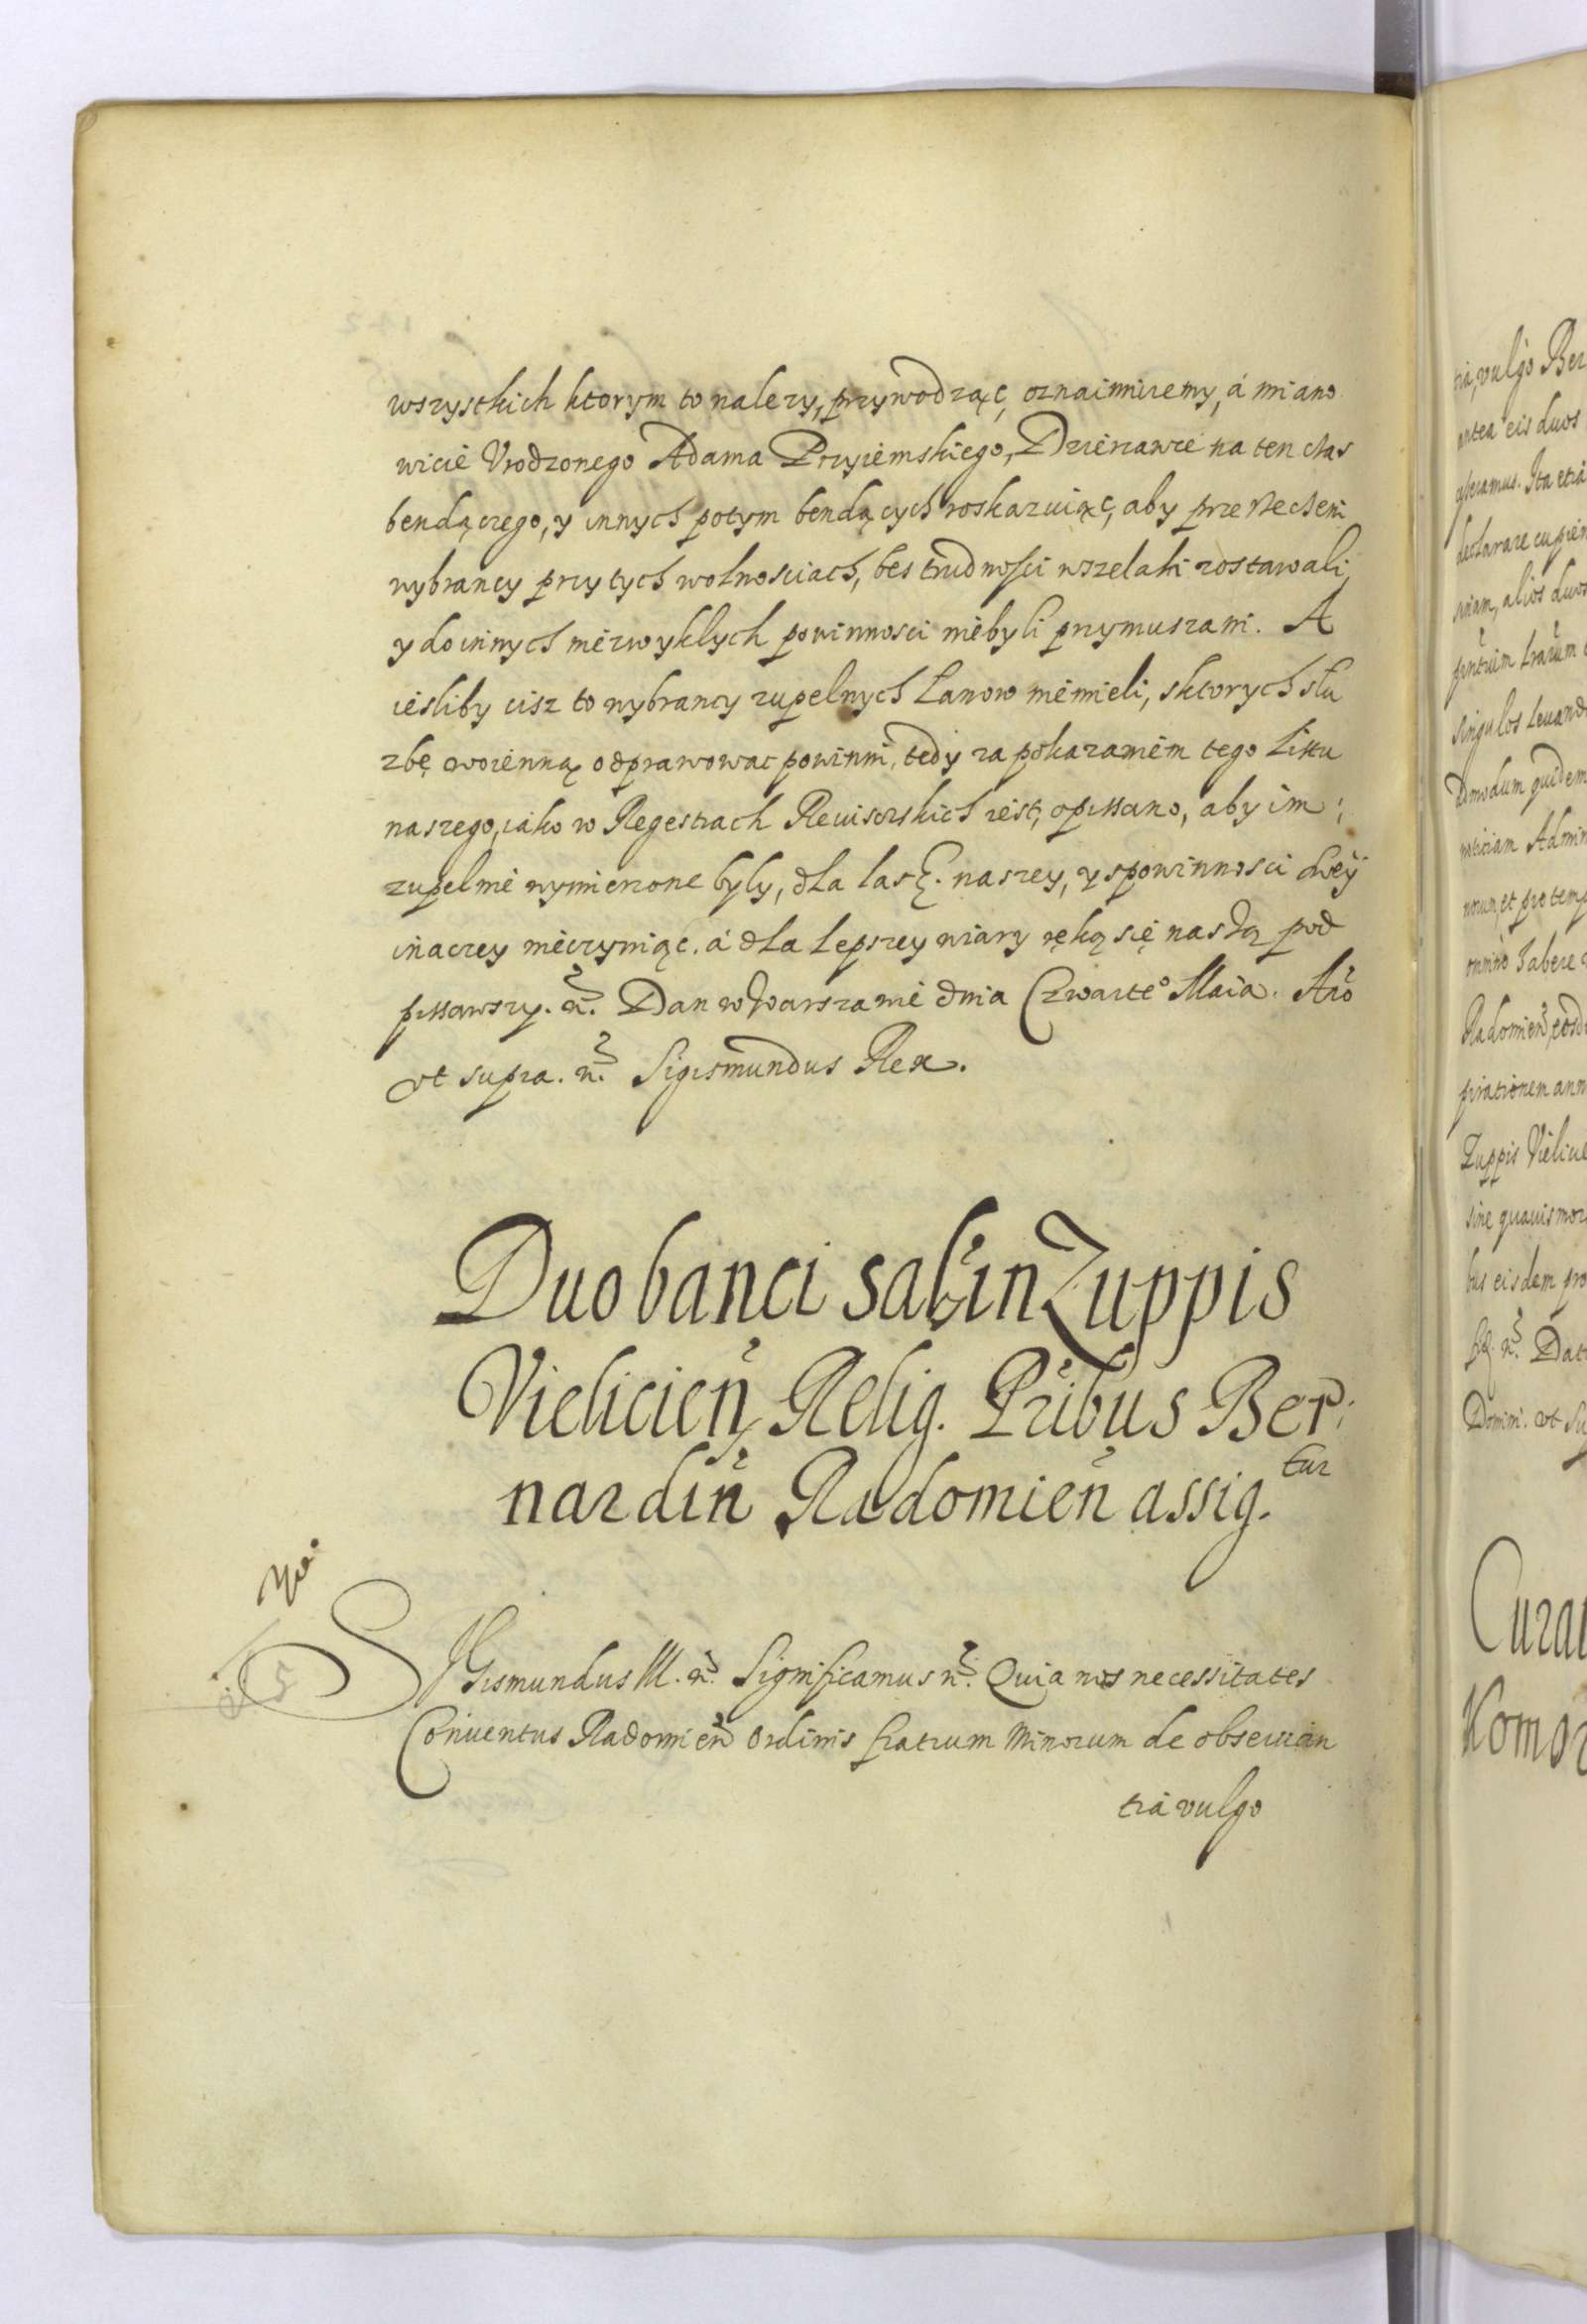 wszystkich ktorym to nalezy, przywodząc, oznaimiuiemy, á miano
wicie Vrodzonego Adama Przyiemskiego, Dzierzawce na ten czas
bendączego, y innych potym bendących roskazuiąc, aby przerzecheni
wybrancy przy tych wolnosciach, bes trudnosci wszelaki zostawali,
y do innych niezwyklych powinnosci niebyli przymuszani. A
iesliby cisz to wybrancy zupelnych Łanow niemieli, sktorych słu
zbę woienną odprawowac powinni, tedy za pokazaniem tego Listu
naszego, iako w Regestrach Reuisorskich iest, opissano, aby im
zupelnie wymierzone były, dla łaski naszey, y spowinnosci swey
inaczey nieczyniąc. á dla lepszey wiary ręką się naszą pod
pissawszy. &c. Dan w Warszawie dnia Czwarte° Maia. Año
vt supra. &c. Sigismundus Rex.
Duo banci sal: in Zuppis
Vielicieñ Relig. Pribus Ber:
nardiñ Radomieñ assig.tur
Sigismundus III. &c. Significamus &c. Quia nos necessitates
Conuentus Radomieñ Ordinis fratrum Minorum de obseruan
tia vulgo
tia, vulgo Ber
antea eis duos
Ita etiã
declarare cupien
alios duos
singulos leuand
Admodum quidem
Admin
et pro temp
omnino habere
Radomieñ
annu
Zuppis Vielicie
sine quauis mor
bus eisdem pro
&c. Dat
Domini. vt su
Curat
Komor